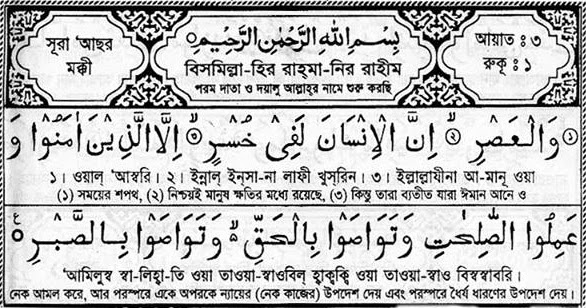 সূরা 'আছর
মক্কী
بِسْمِ اللهِ الرَّحْمٰنِ الرَّحِيْمِ
বিসমিল্লা-হির রাহ্‌মা-নির রাহীম
পরম দাতা ও দয়ালু আল্লাহ্‌র নামে শুরু করছি
আয়াত : ৩
রুকূ : ১
وَالْعَصْرِ ۝ اِنَّ الْاِنْسَانَ لَفِيْ خُسْرٍ ۝ اِلَّا الَّذِيْنَ اٰمَنُوْا وَ
১। ওয়াল্ 'আস্বরি। ২। ইন্নাল্ ইন্‌সা-না লাফী খুস্‌রিন। ৩। ইল্লাল্লাযীনা আ-মানূ ওয়া
(১) সময়ের শপথ, (২) নিশ্চয়ই মানুষ ক্ষতির মধ্যে রয়েছে, (৩) কিন্তু তারা ব্যতীত যারা ঈমান আনে ও
عَمِلُوا الصّٰلِحٰتِ وَتَوَاصَوْا بِالْحَقِّ وَتَوَاصَوْا بِالصَّبْرِ
'আমিলুস্ব স্বা-লিহা-তি ওয়া তাওয়া-স্বাওবিল্ হাক্বক্বি ওয়া তাওয়া-স্বাও বিস্বস্বাবরি।
নেক আমল করে, আর পরস্পরে একে অপরকে ন্যায়ের (নেক কাজের) উপদেশ দেয় এবং পরস্পরে ধৈর্য ধারণের উপদেশ দেয়।